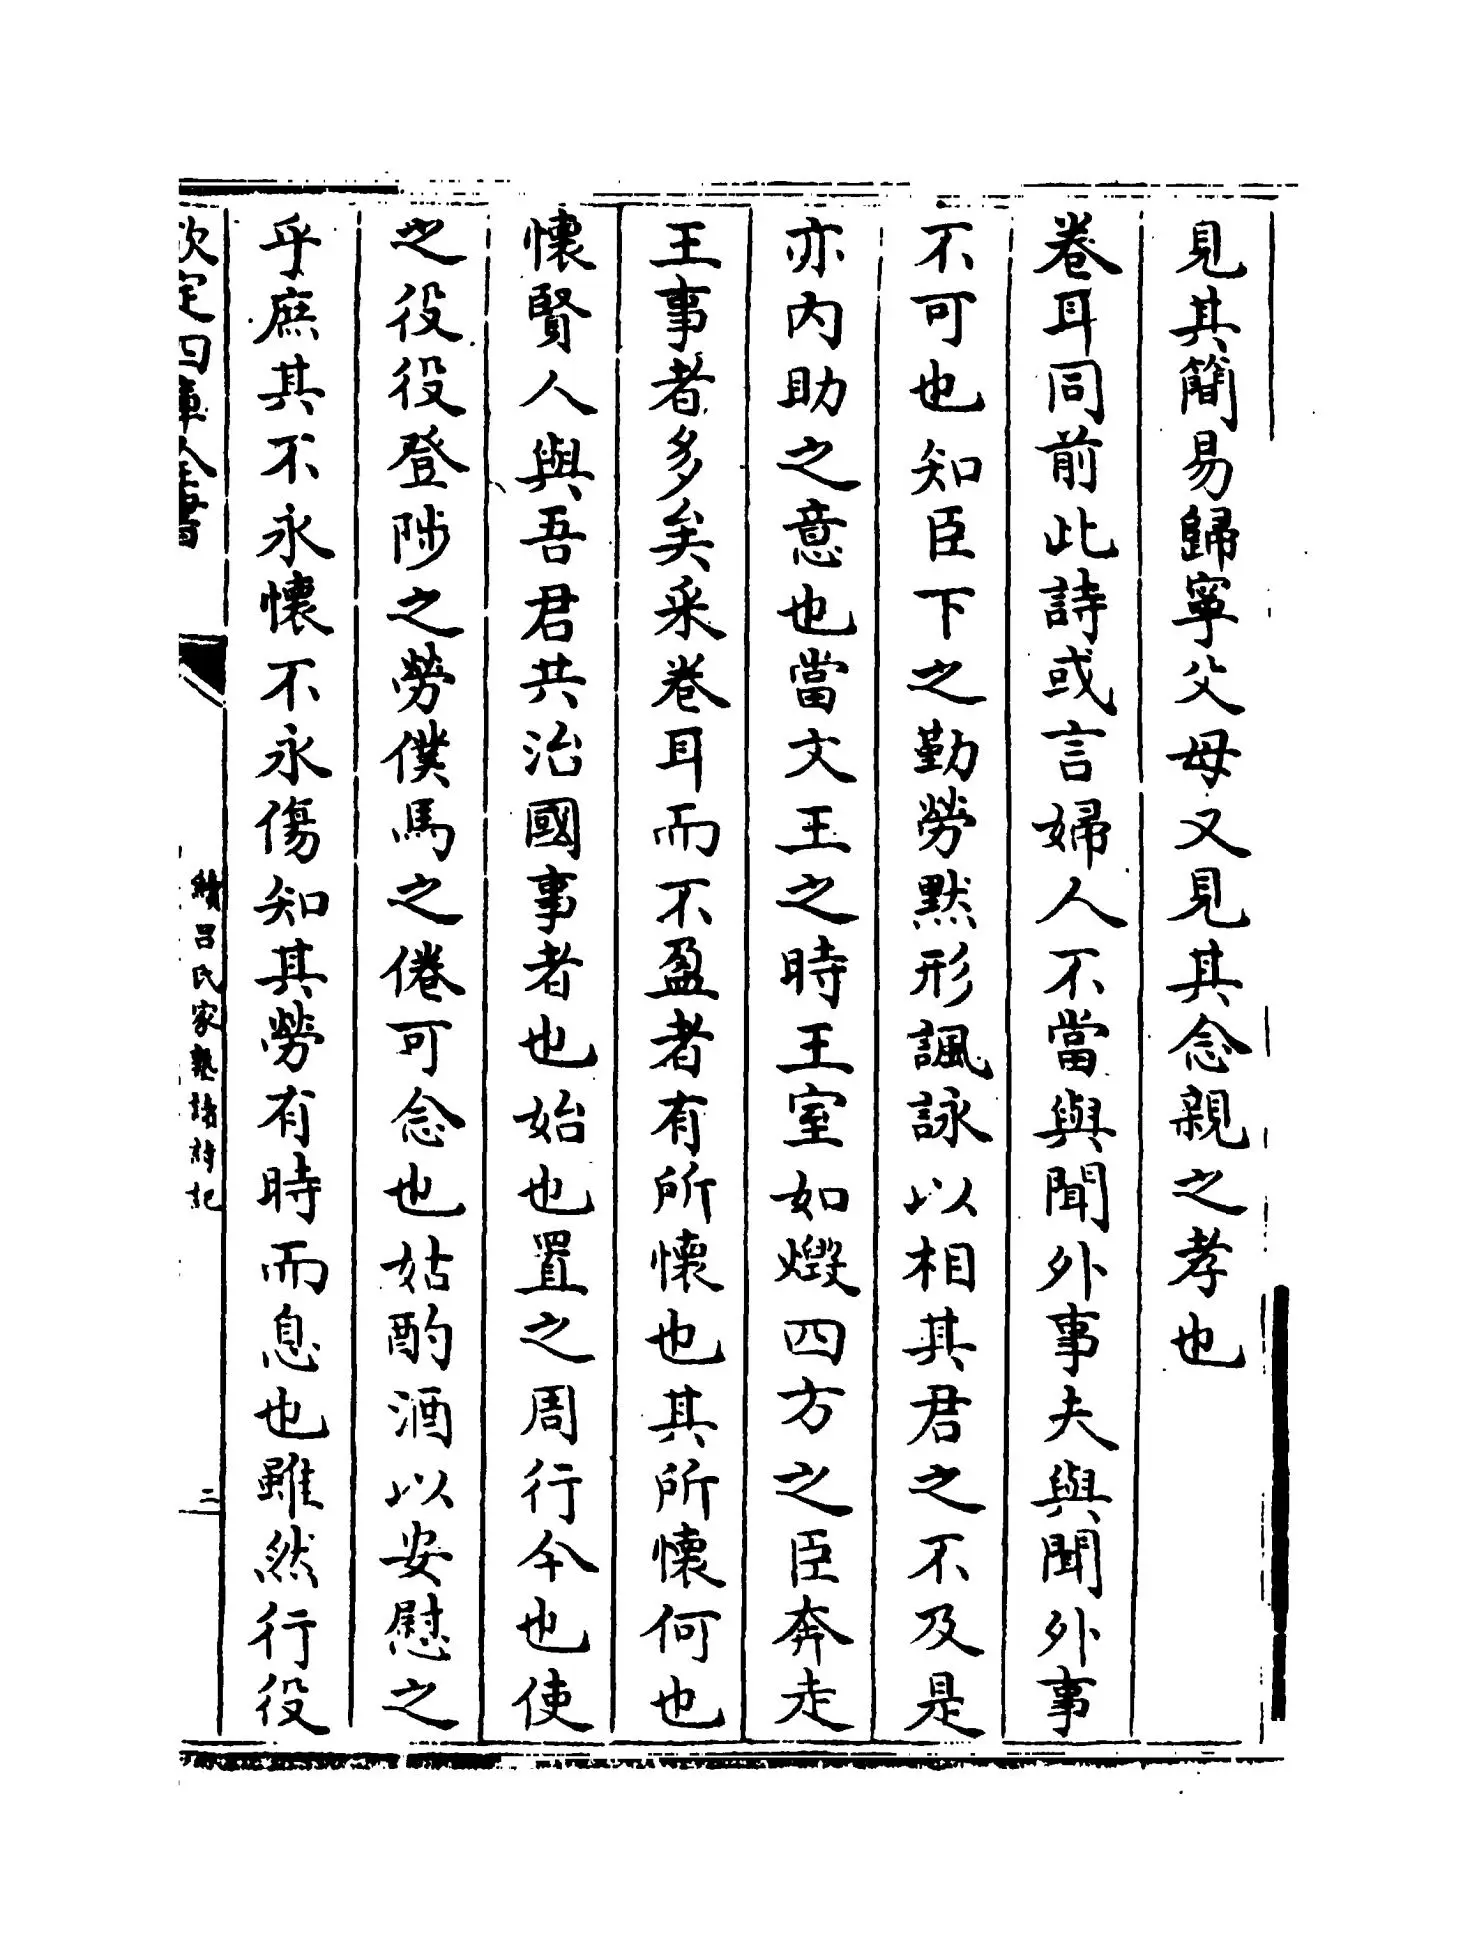 見其簡易歸寧父母又見其念親之孝也
卷耳同前此詩或言婦人不當與聞外事夫與聞外事
不可也知臣下之勤勞黙形諷詠以相其君之不及是
亦内助之意也當文王之時王室如燬四方之臣奔走
王事者多矣采卷耳而不盈者有所懷也其所懷何也
懷賢人與吾君共治國事者也始也置之周行今也使
之役役登陟之勞僕馬之倦可念也姑酌酒以安慰之
乎庶其不永懷不永傷知其勞有時而息也雖然行役
欽定四庫全書
續呂氏家塾讀詩記
二